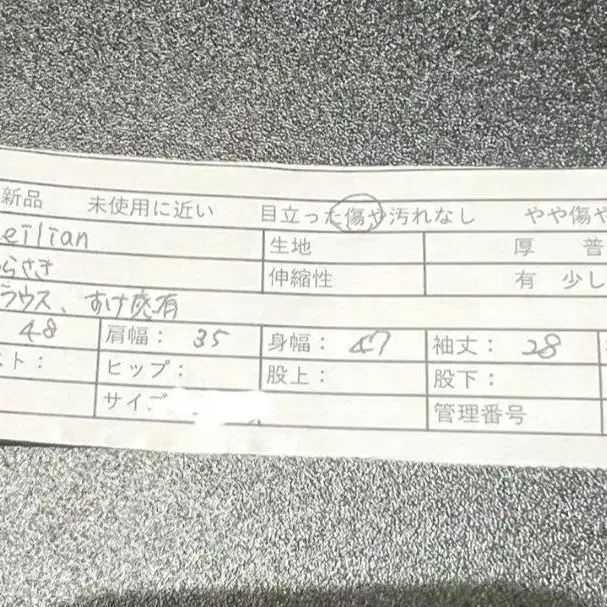 新品 未使用に近い 目立った傷や汚れなし やや傷や
eilian 生地 厚 普
らさき 伸縮性 有 少し
ラウス、すけ感有
48 肩幅: 35 身幅: 47 袖丈: 28
スト: ヒップ: 股上: 股下:
サイ 管理番号